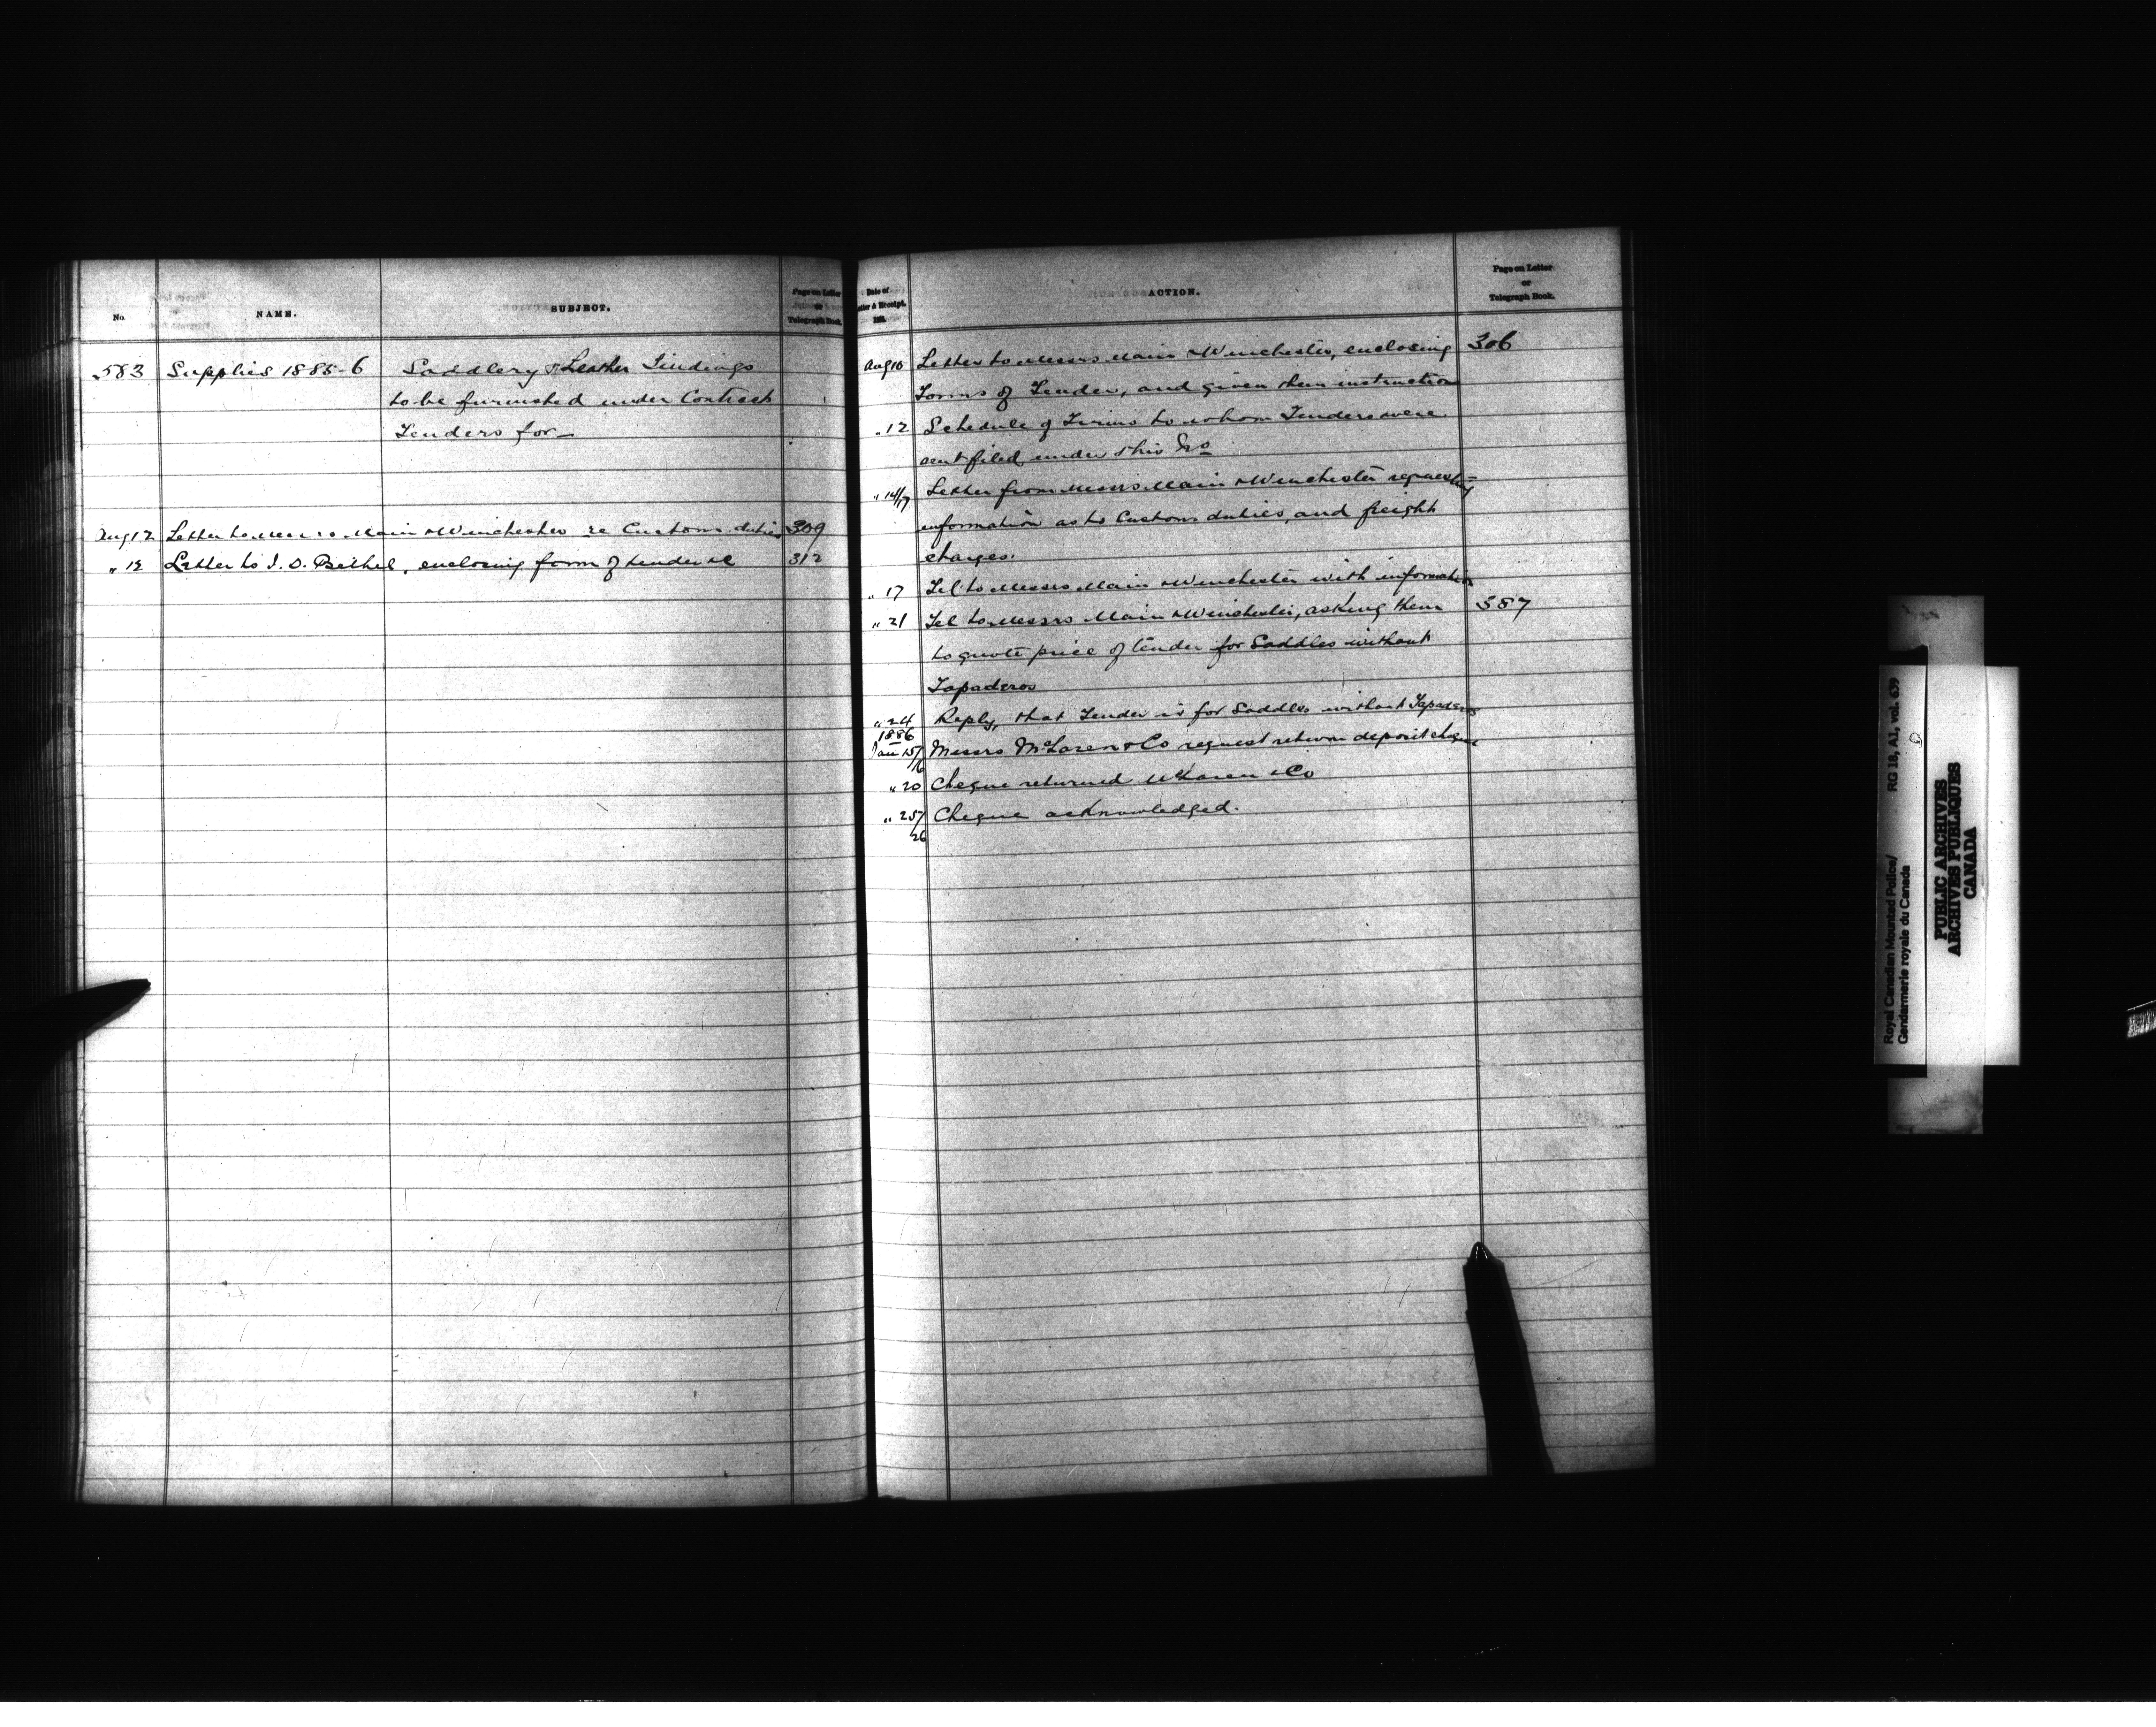 No. NAME. SUBJECT. Page on Letter or Telegraph Book.
583 Supplies 1885-6 Saddlery & Leather Findings
to be furnished under Contract
Tenders for—
Aug 12 Letter to Messrs Main & Winchester re Customs duties 309
" 12 Letter to J. S. Bethel, enclosing form of tender &c 312
Date of Letter & Receipt. 188. ACTION. Page on Letter or Telegraph Book.
Aug 10 Letter to Messrs Main & Winchester, enclosing 306
Forms of Tender, and given them instruction
" 12 Schedule of Firms to whom Tenders were
sent filed under this No
" 14/17 Letter from Messrs Main & Winchester requesting
information as to Customs duties, and freight
charges.
" 17 Tel to Messrs Main & Winchester with information
" 21 Tel to Messrs Main & Winchester, asking them 387
to quote price of tender for Saddles without
Tapaderos
" 24 Reply, that Tender is for Saddles without Tapaderos
1886
Jan 15/16 Messrs McLaren & Co request return deposit cheque
" 20 Cheque returned McLaren & Co
" 25/26 Cheque acknowledged.
Royal Canadian Mounted Police/
Gendarmerie royale du Canada
RG 18, A1, vol. 639
PUBLIC ARCHIVES
ARCHIVES PUBLIQUES
CANADA